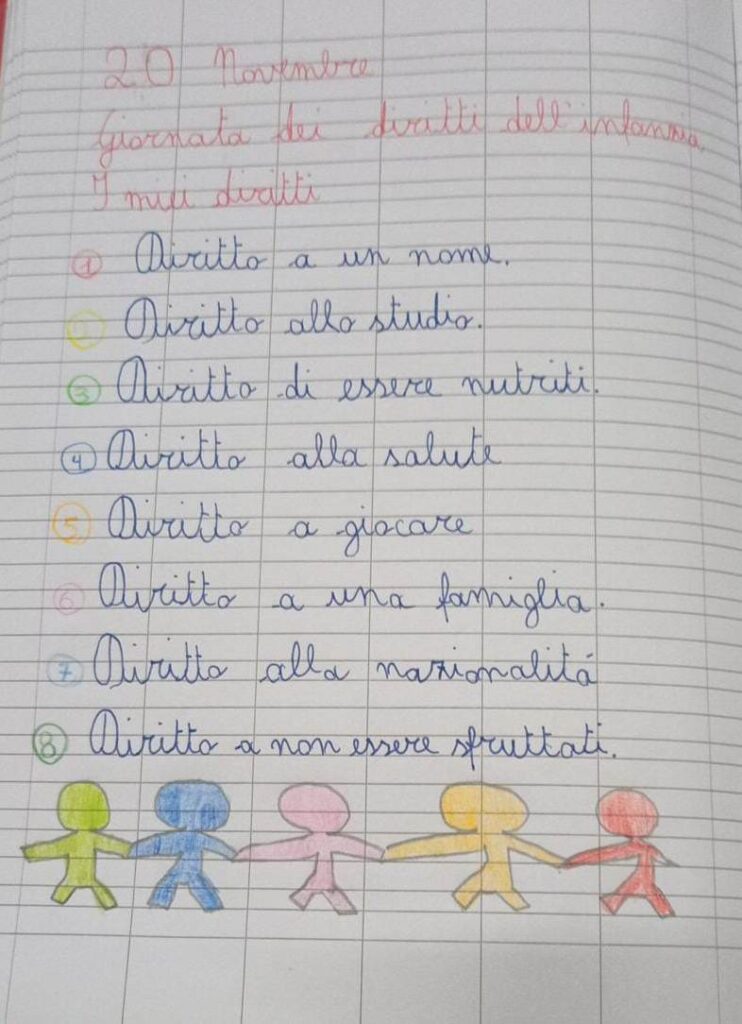 20 Novembre
Giornata dei diritti dell'infanzia.
I miei diritti
1 Diritto a un nome.
2 Diritto allo studio.
3 Diritto di essere nutriti.
4 Diritto alla salute
5 Diritto a giocare
6 Diritto a una famiglia.
7 Diritto alla nazionalitá
8 Diritto a non essere sfruttati.